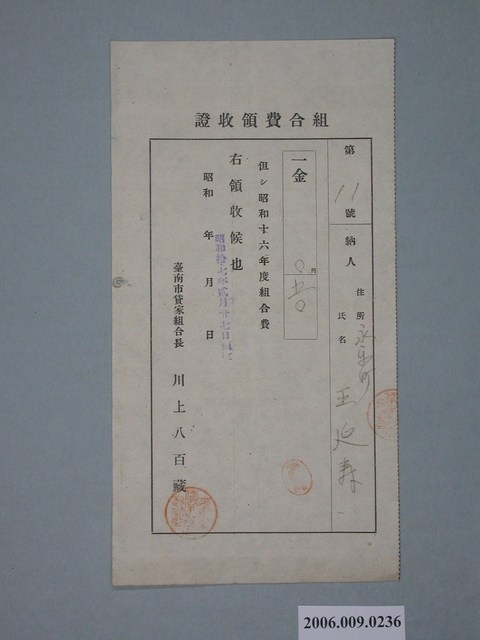 組合費領收證
第 11 號 納人 住所 氏名 王延壽
一金
但シ昭和十六年度組合費
右領收候也
昭和 年 月 日
昭和拾七年貳月廿七日
臺南市貸家組合長 川上八百藏
2006.009.0236